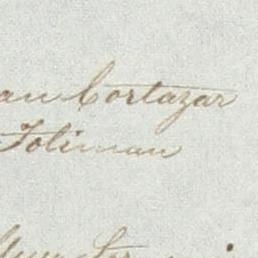 an Cortazar
Toliman